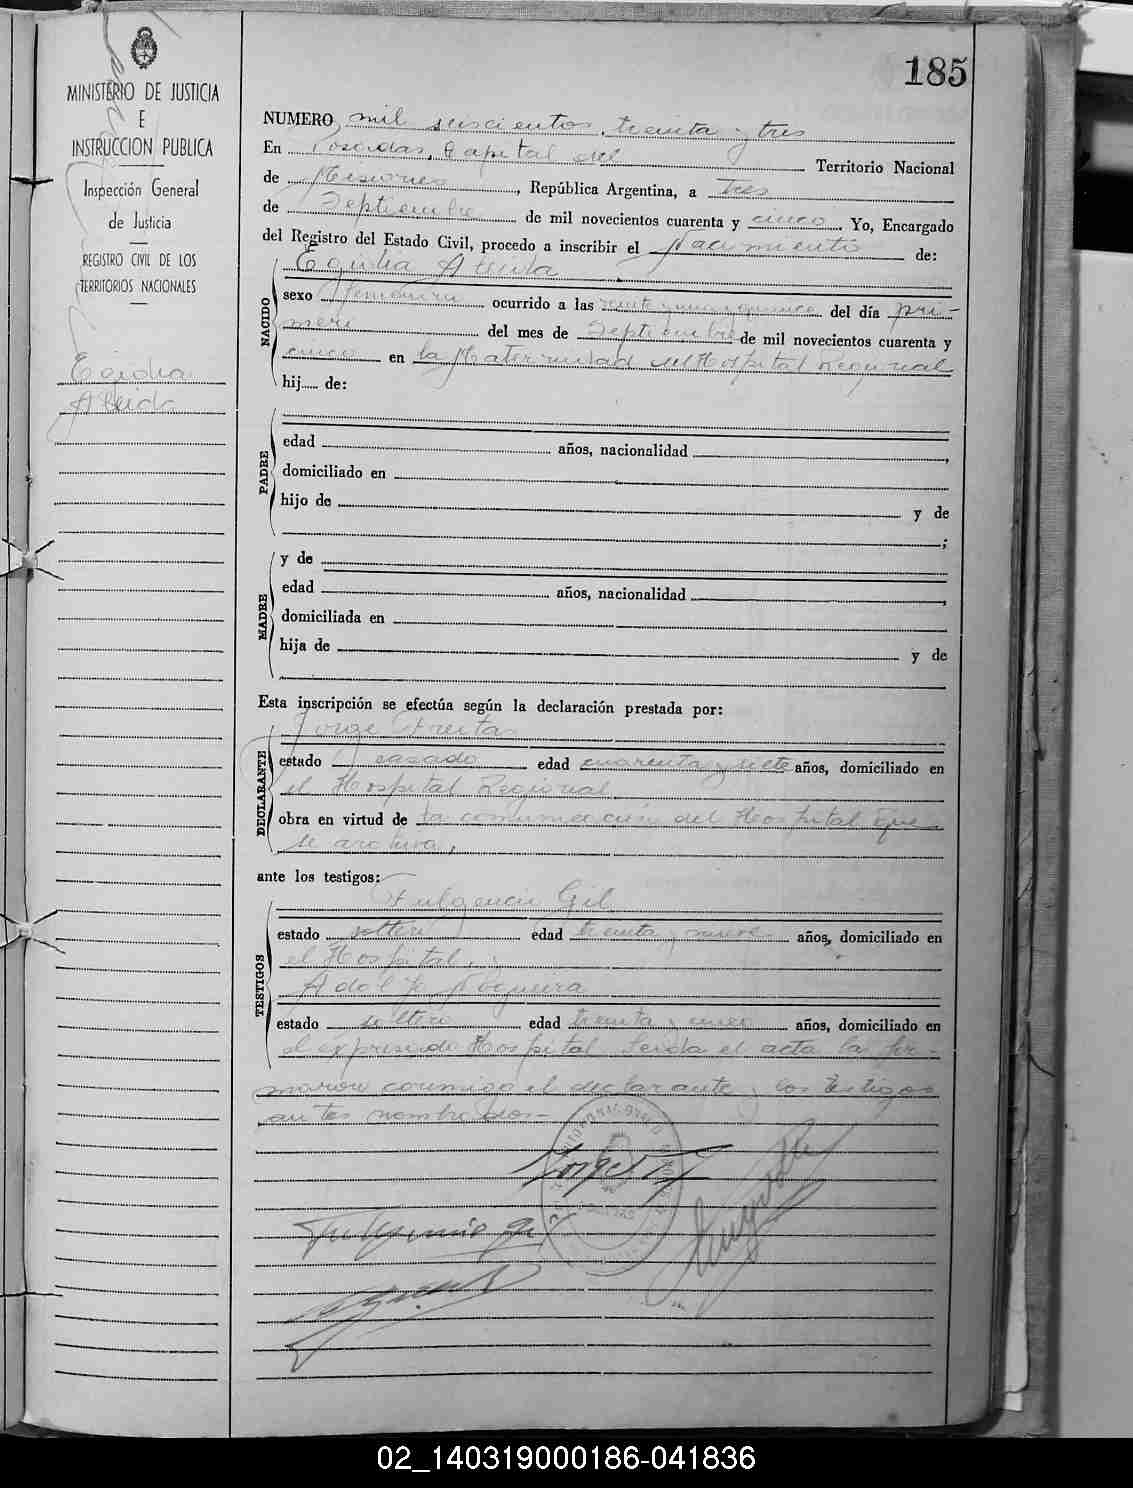 185
MINISTERIO DE JUSTICIA
E
INSTRUCCION PUBLICA
Inspección General
de Justicia
REGISTRO CIVIL DE LOS
TERRITORIOS NACIONALES
Egidia
Aleida
NUMERO mil seiscientos treinta y tres
En Posadas, Capital del Territorio Nacional
de Misiones, República Argentina, a tres
de Septiembre de mil novecientos cuarenta y cinco. Yo, Encargado
del Registro del Estado Civil, procedo a inscribir el Nacimiento de:
NACIDO
Egidia Aleida
sexo femenino ocurrido a las veinte y una y quince del día pri-
mero del mes de Septiembre de mil novecientos cuarenta y
cinco en la Maternidad del Hospital Regional
hij..... de:
PADRE
edad años, nacionalidad ,
domiciliado en
hijo de y de
;
MADRE
y de
edad años, nacionalidad ,
domiciliada en
hija de y de
Esta inscripción se efectúa según la declaración prestada por:
DECLARANTE
Jorge Freitas
estado casado edad cuarenta y siete años, domiciliado en
el Hospital Regional
obra en virtud de la comunicación del Hospital que
se archiva.
ante los testigos:
TESTIGOS
Fulgencio Gil
estado soltero edad treinta y nueve años, domiciliado en
el Hospital.
Adolfo Nogueira
estado soltero edad treinta y cinco años, domiciliado en
el expresado Hospital. Leida el acta la fir-
maron conmigo el declarante y los testigos
antes nombrados-
02_140319000186-041836